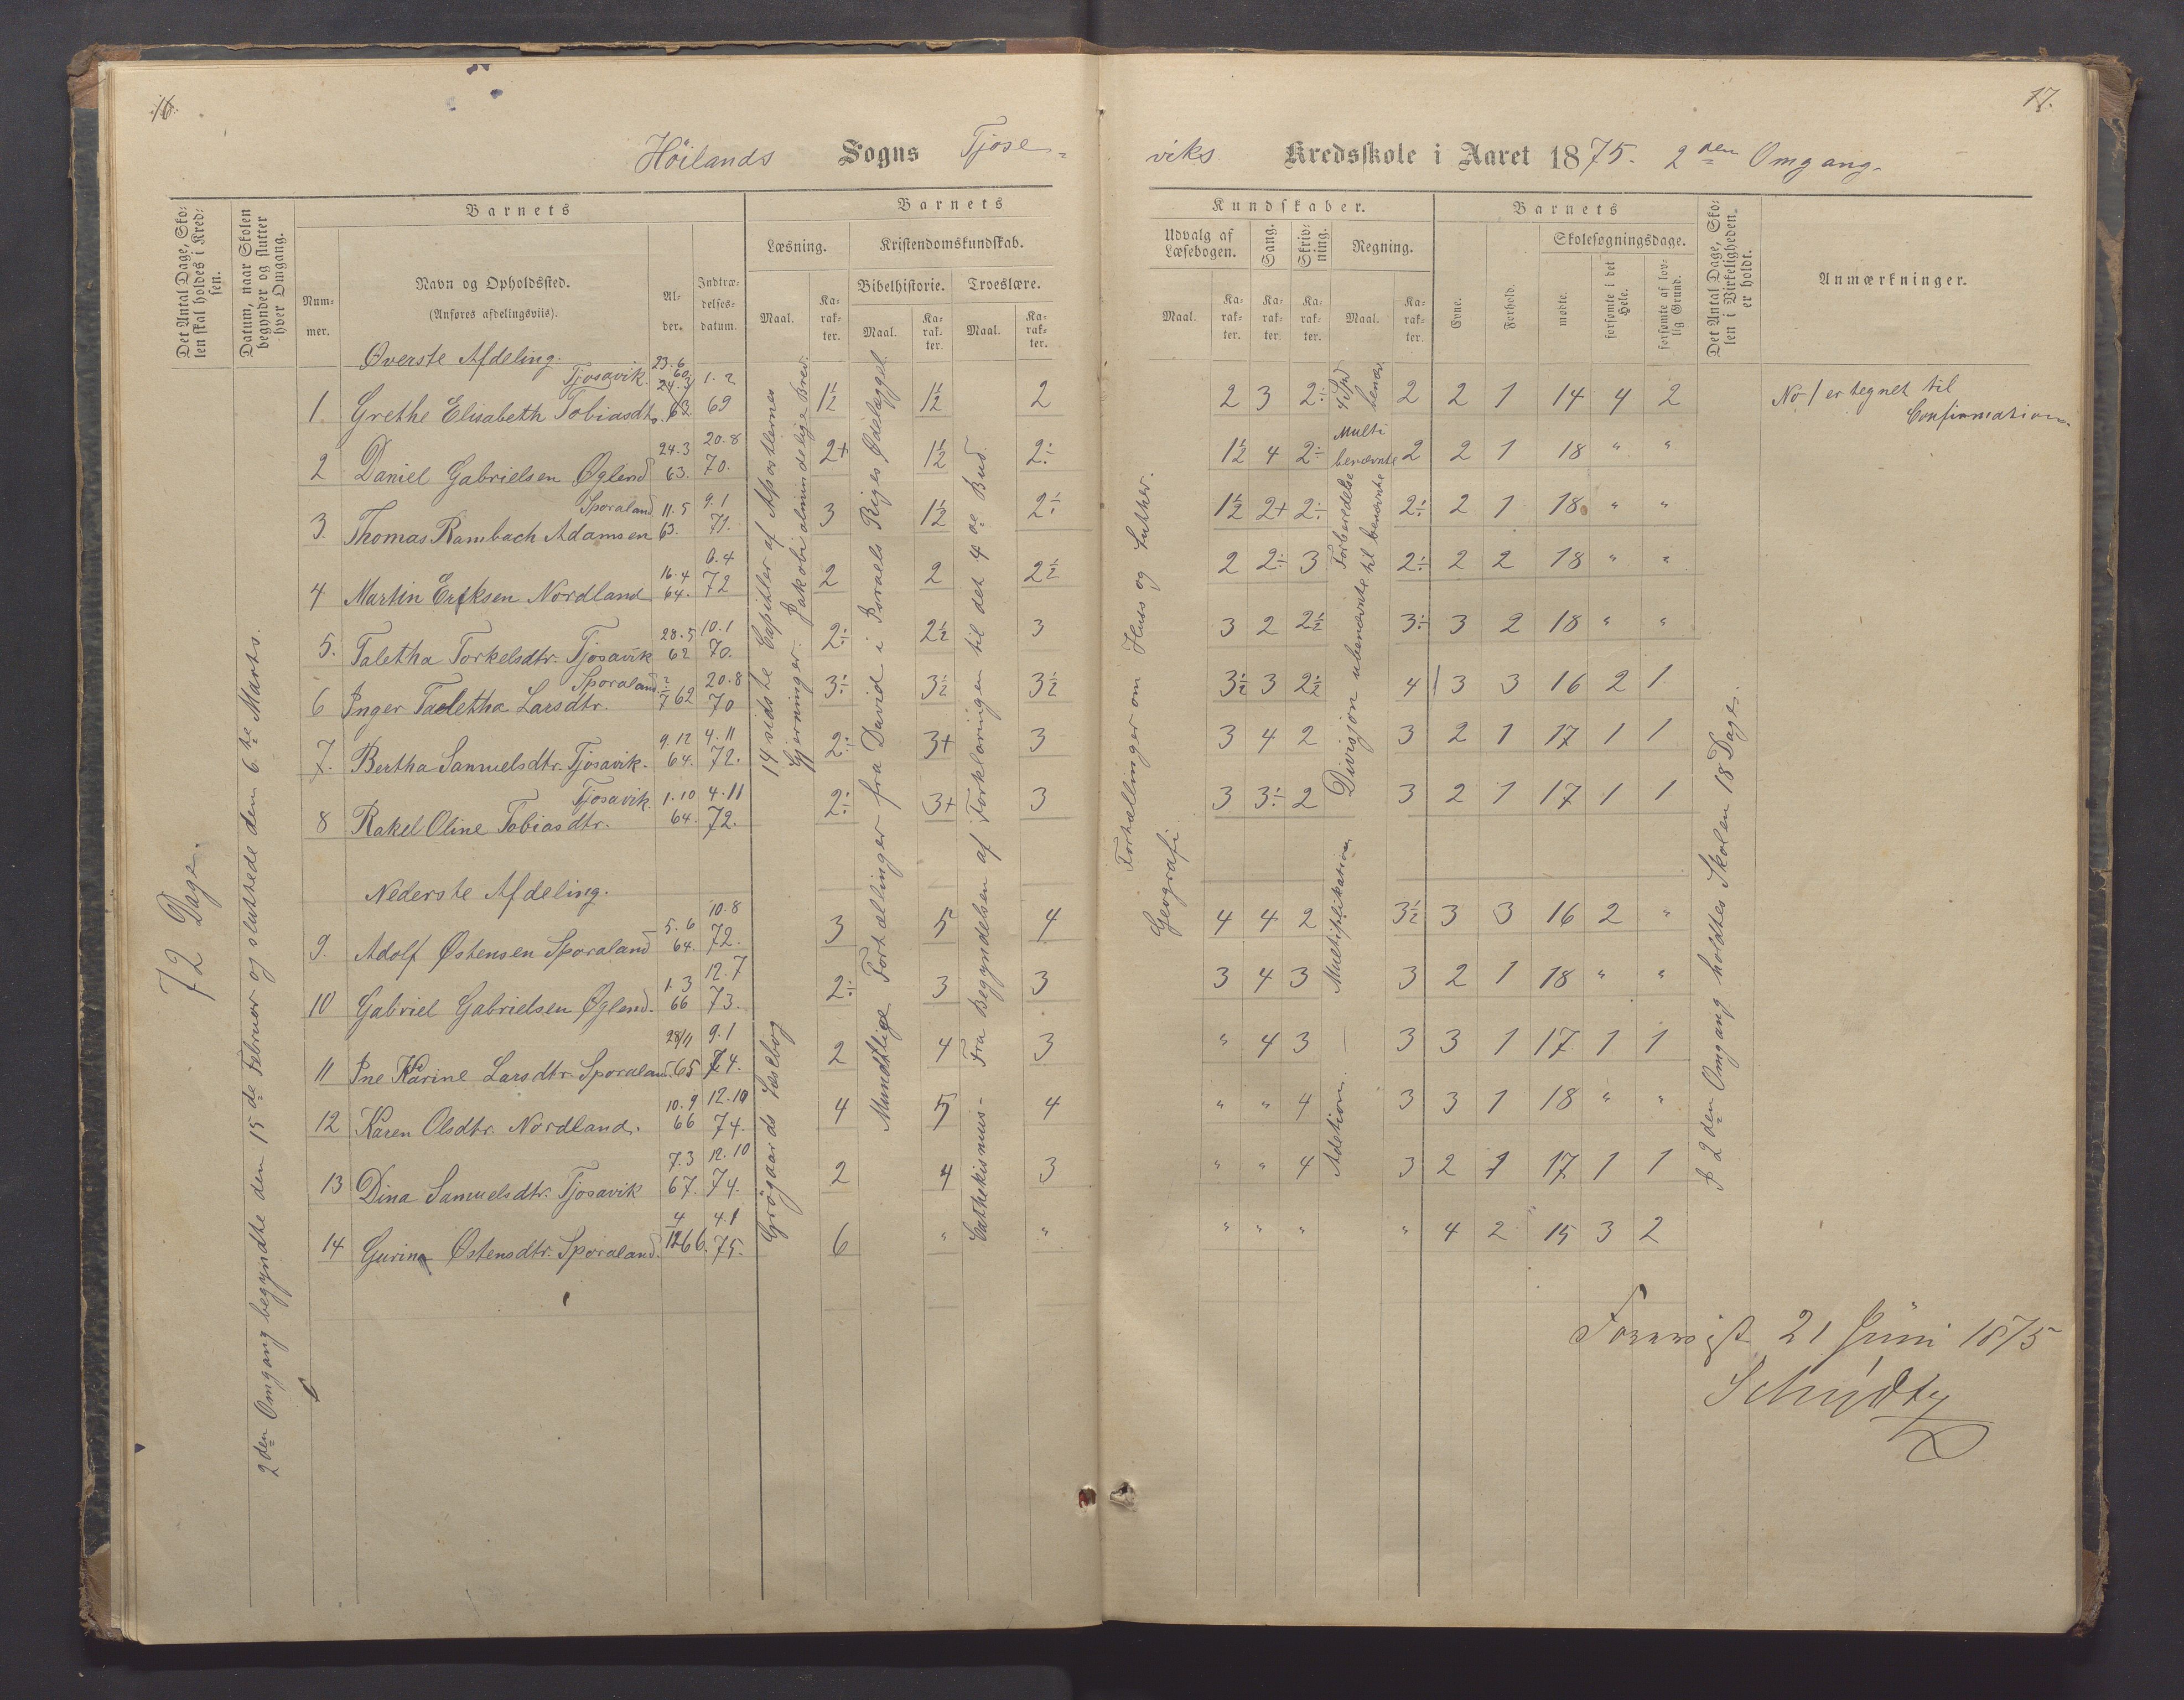 16.
17.
Höilands Sogns Tjose-
viks Kredsskole i Aaret 1875. 2den Omgang.
Det Antal Dage, Sko-
len skal holdes i Kred-
sen.
Datum, naar Skolen
begynder og slutter
hver Omgang.
Barnets
Num-
mer.
Navn og Opholdssted.
(Anføres afdelingsviis).
Al-
der.
Indtræ-
delses-
datum.
Barnets
Læsning.
Maal.
Ka-
rak-
ter.
Kristendomskundskab.
Bibelhistorie.
Maal.
Ka-
rak-
ter.
Troeslære.
Maal.
Ka-
rak-
ter.
Kundskaber.
Udvalg af
Læsebogen.
Maal.
Ka-
rak-
ter.
Sang.
Ka-
rak-
ter.
Skriv-
ning.
Ka-
rak-
ter.
Regning.
Maal.
Ka-
rak-
ter.
Barnets
Evne.
Forhold.
Skolesøgningsdage.
mødte.
forsømte i det
Hele.
forsømte af lov-
lig Grund.
Det Antal Dage, Sko-
len i Virkeligheden
er holdt.
Anmærkninger.
72 Dage.
2den Omgang begyndte den 15de Februar og sluttede den 6te Marts.
14 sidste Capitler af Apostlernes
Gjerninger. Jakobi almindelige Brev.
Grøgaards Læsebog
Mundtlige Fortællinger fra David i Israels Riges Ødelæggel.
Cathekismus- Fra Begyndelsen af Forklaringen til det 4de Bud.
Fortællinger om Huss og Luther.
Geografi
4 Spd
benæv
Multi
benævnte
Forberedelse
Divisjon ubenævnte til benævnte
Multiplikation
Adetion.
I 2den Omgang holdtes Skolen 18 Dage.
Øverste Afdeling.
Tjosavik. 23.6 60 24.3 1.2
1. Grethe Elisabeth Tobiasdtr. 63 69 1½ 1½ 2 2 3 2÷ 2 2 1 14 4 2 No 1 er tegnet til
Confirmation.
24.3 20.8
2 Daniel Gabrielsen Øglend 63. 70. 2+ 1½ 2÷ 1½ 4 2÷ 2 2 1 18 " "
Sporaland 11.5 9.1
3. Thomas Rambach Adamsen 63. 71. 3 1½ 2÷ 1½ 2+ 2÷ 2÷ 2 1 18 " "
16.4 6.4
4 Martin Eriksen Nordland 64. 72 2 2 2½ 2 2÷ 3 2÷ 2 2 18 " "
28.5 10.1
5. Taletha Torkelsdtr. Tjosavik 62 70. 2÷ 2½ 3 3 2 2½ 3÷ 3 2 18 " "
Sporaland 20.8
6 Inger Taletha Larsdtr. 7 62 70 3÷ 3½ 3½ 3½ 3 2½ 4 3 3 16 2 1
9.12 4.11
7. Bertha Samuelsdtr. Tjosavik. 64. 72. 2÷ 3+ 3 3 4 2 3 2 1 17 1 1
Tjosavik. 1.10 4.11
8 Rakel Oline Tobiasdtr. 64. 72. 2÷ 3+ 3 3 3÷ 2 3 2 1 17 1 1
Nederste Afdeling.
5.6 10.8
9. Adolf Østensen Sporaland 64. 72. 3 5 4 4 4 2 3½ 3 3 16 2 "
1.3 12.7
10 Gabriel Gabrielsen Øglend. 66 73. 2÷ 3 3 3 4 3 3 2 1 18 " "
28/11 9.1
11 Ine Karine Larsdtr. Sporaland. 65 74. 2 4 3 " 4 3 3 3 1 17 1 1
10.9 12.10
12 Karen Olsdtr. Nordland. 66 74. 4 5 4 " " 4 3 3 1 18 " "
7.3 12.10
13 Dina Samuelsdtr. Tjosavik 67. 74. 2 4 3 " " 4 3 2 1 17 1 1
4 4.1
14 Gurina Østensdtr. Sporaland. 12 66. 75. 6 " " " " " " 4 2 15 3 2
21 Juni 1875